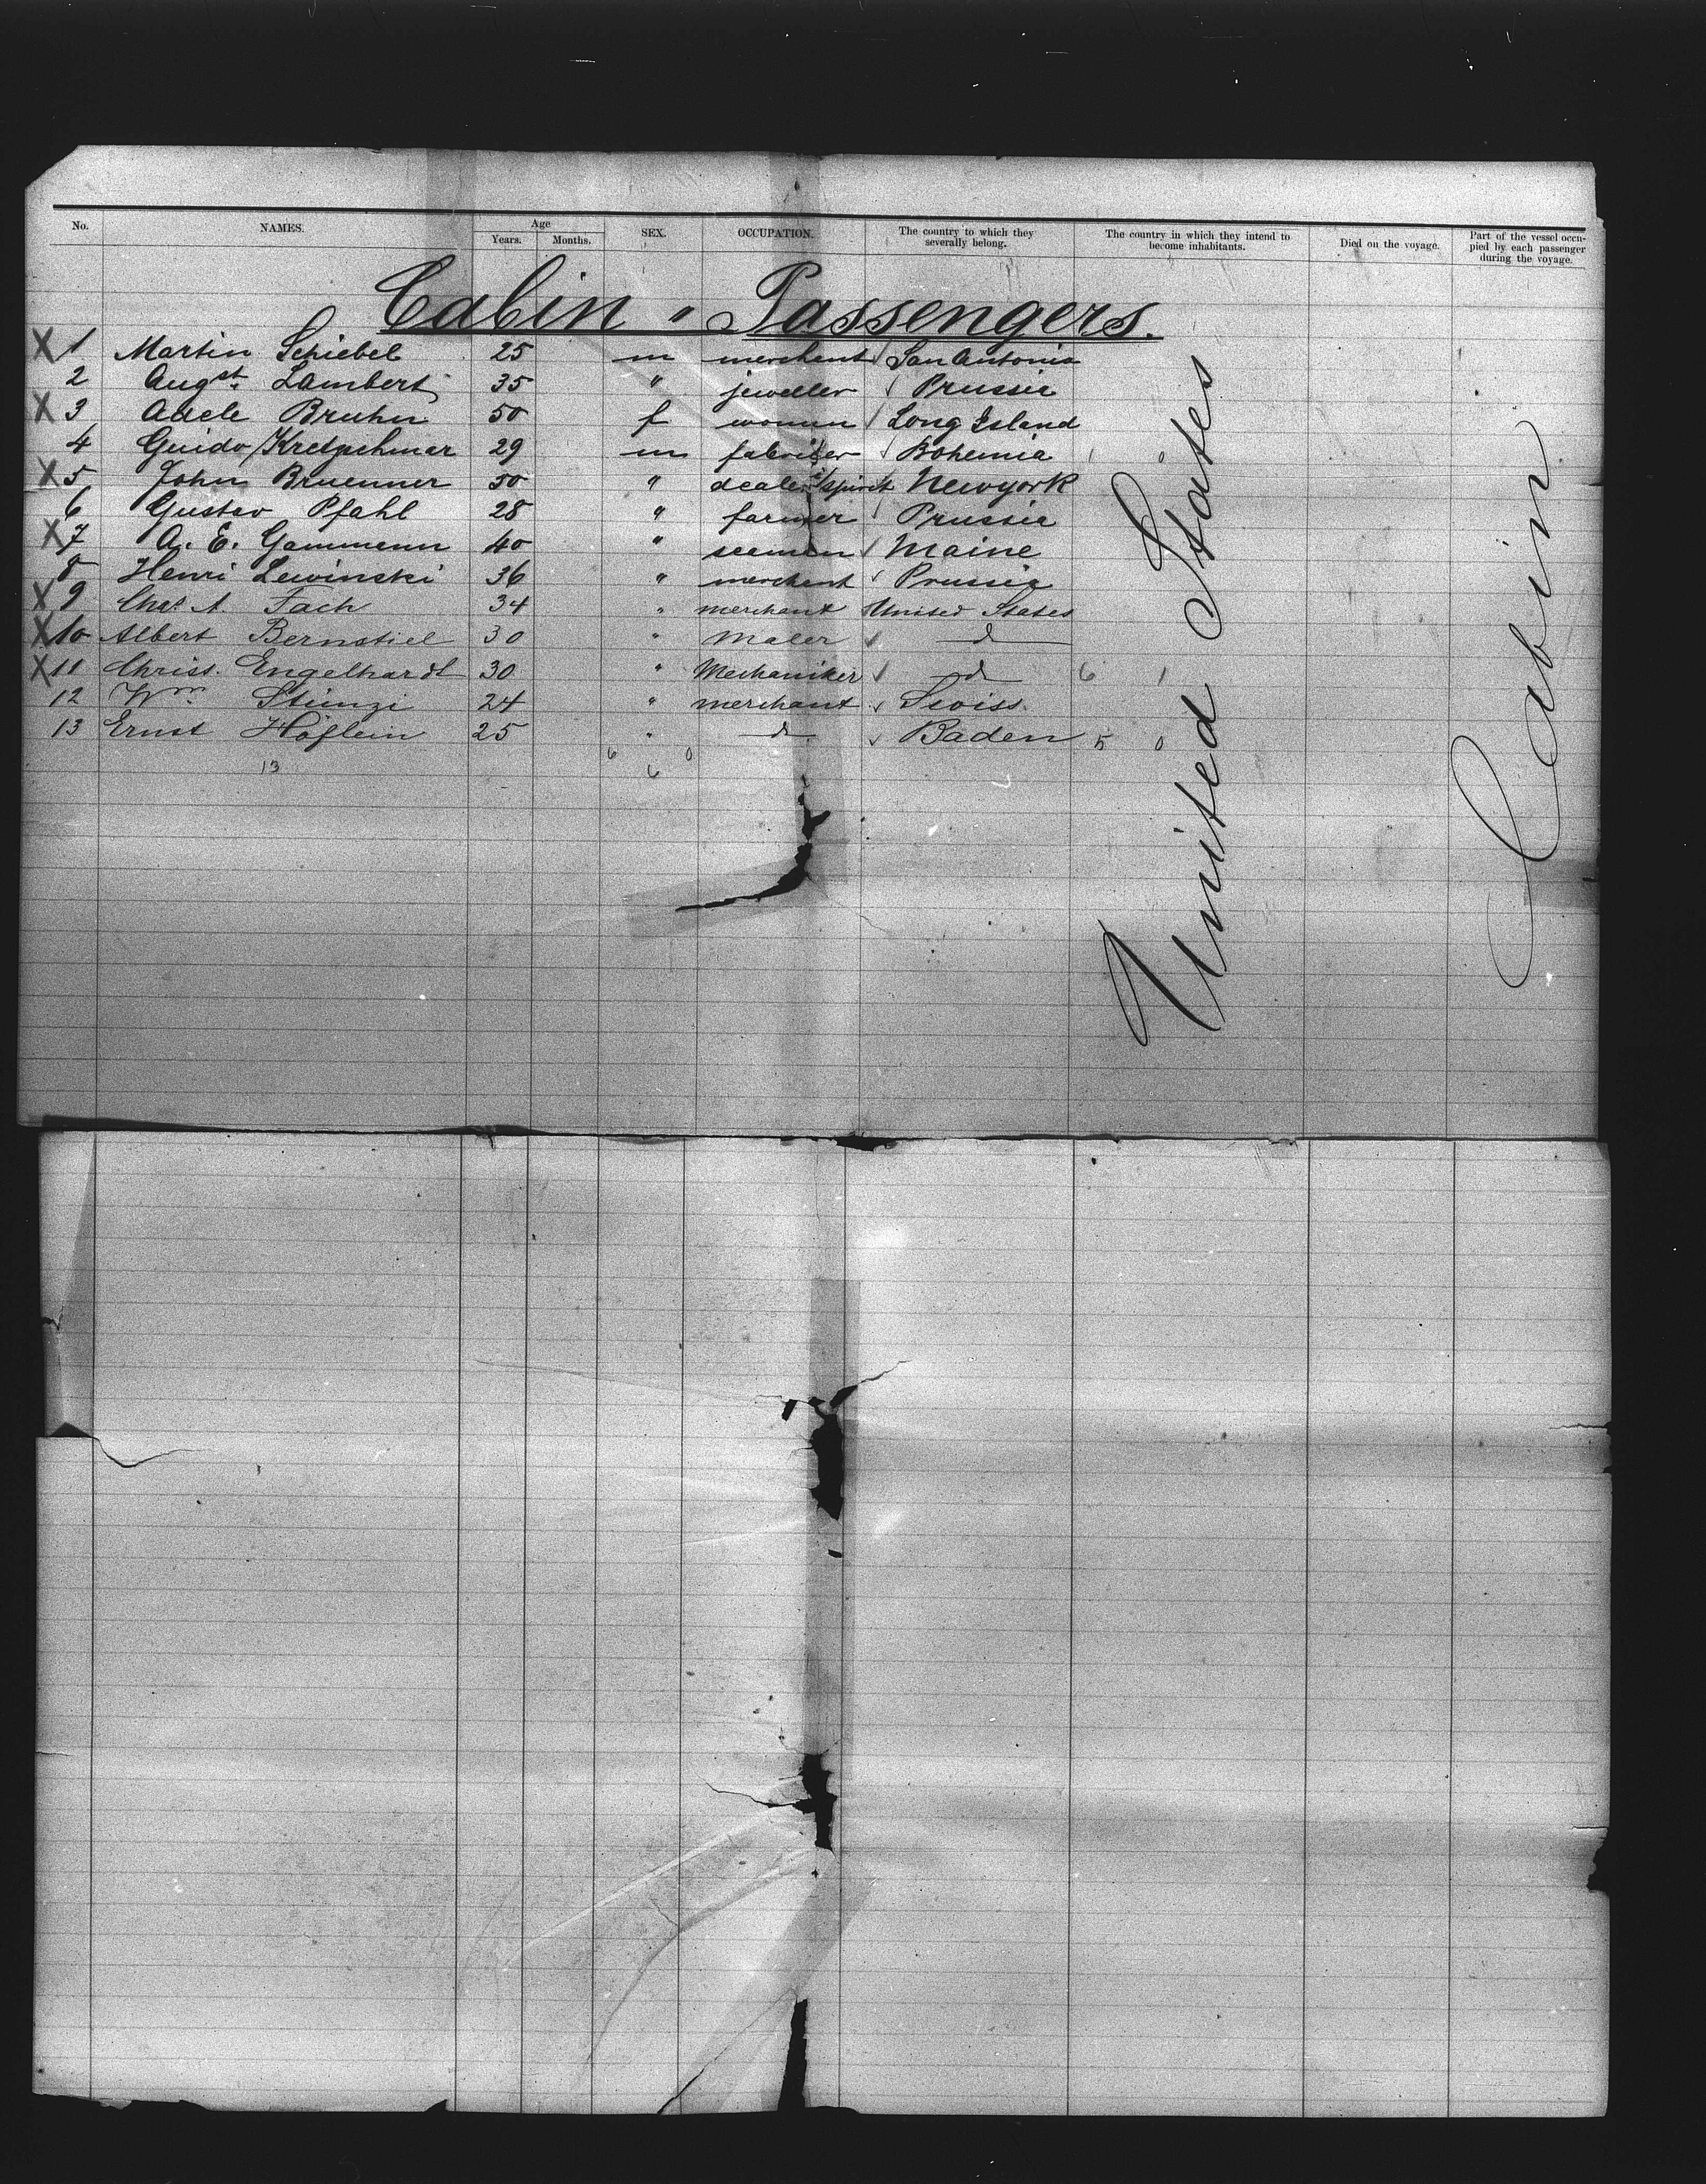 No. NAMES. Age Years. Months. SEX. OCCUPATION. The country to which they severally belong. The country in which they intend to become inhabitants. Died on the voyage. Part of the vessel occupied by each passenger during the voyage.
Cabin " Passengers.
X 1 Martin Schiebel 25 m merchant √ San Antonia
2 Augst. Lambert 35 " jeweller √ Prussia
X 3 Adele Bruhn 50 f women √ Long Island
4 Guido Kretzschmar 29 m √ Bohemia 1 0
X 5 John Bruenner 50 " dealer spirit Newyork
6 Gustav Pfahl 28 " farmer √ Prussia
X 7 A. E. Gammenn 40 " seeman √ Maine
8 Henri Lewinski 36 " merchant √ Prussia
X 9 Chas. A. Fach 34 " merchant United States
X 10 Albert Bernstiel 30 " Maler √ d
X 11 Christ. Engelhardt 30 " Mechaniker √ d 6 1
12 Wm. Stünzi 24 " merchant √ Swiss.
13 Ernst Höflein 25 " d √ Baden 5 0
6 0
13 6
United States
Cabin